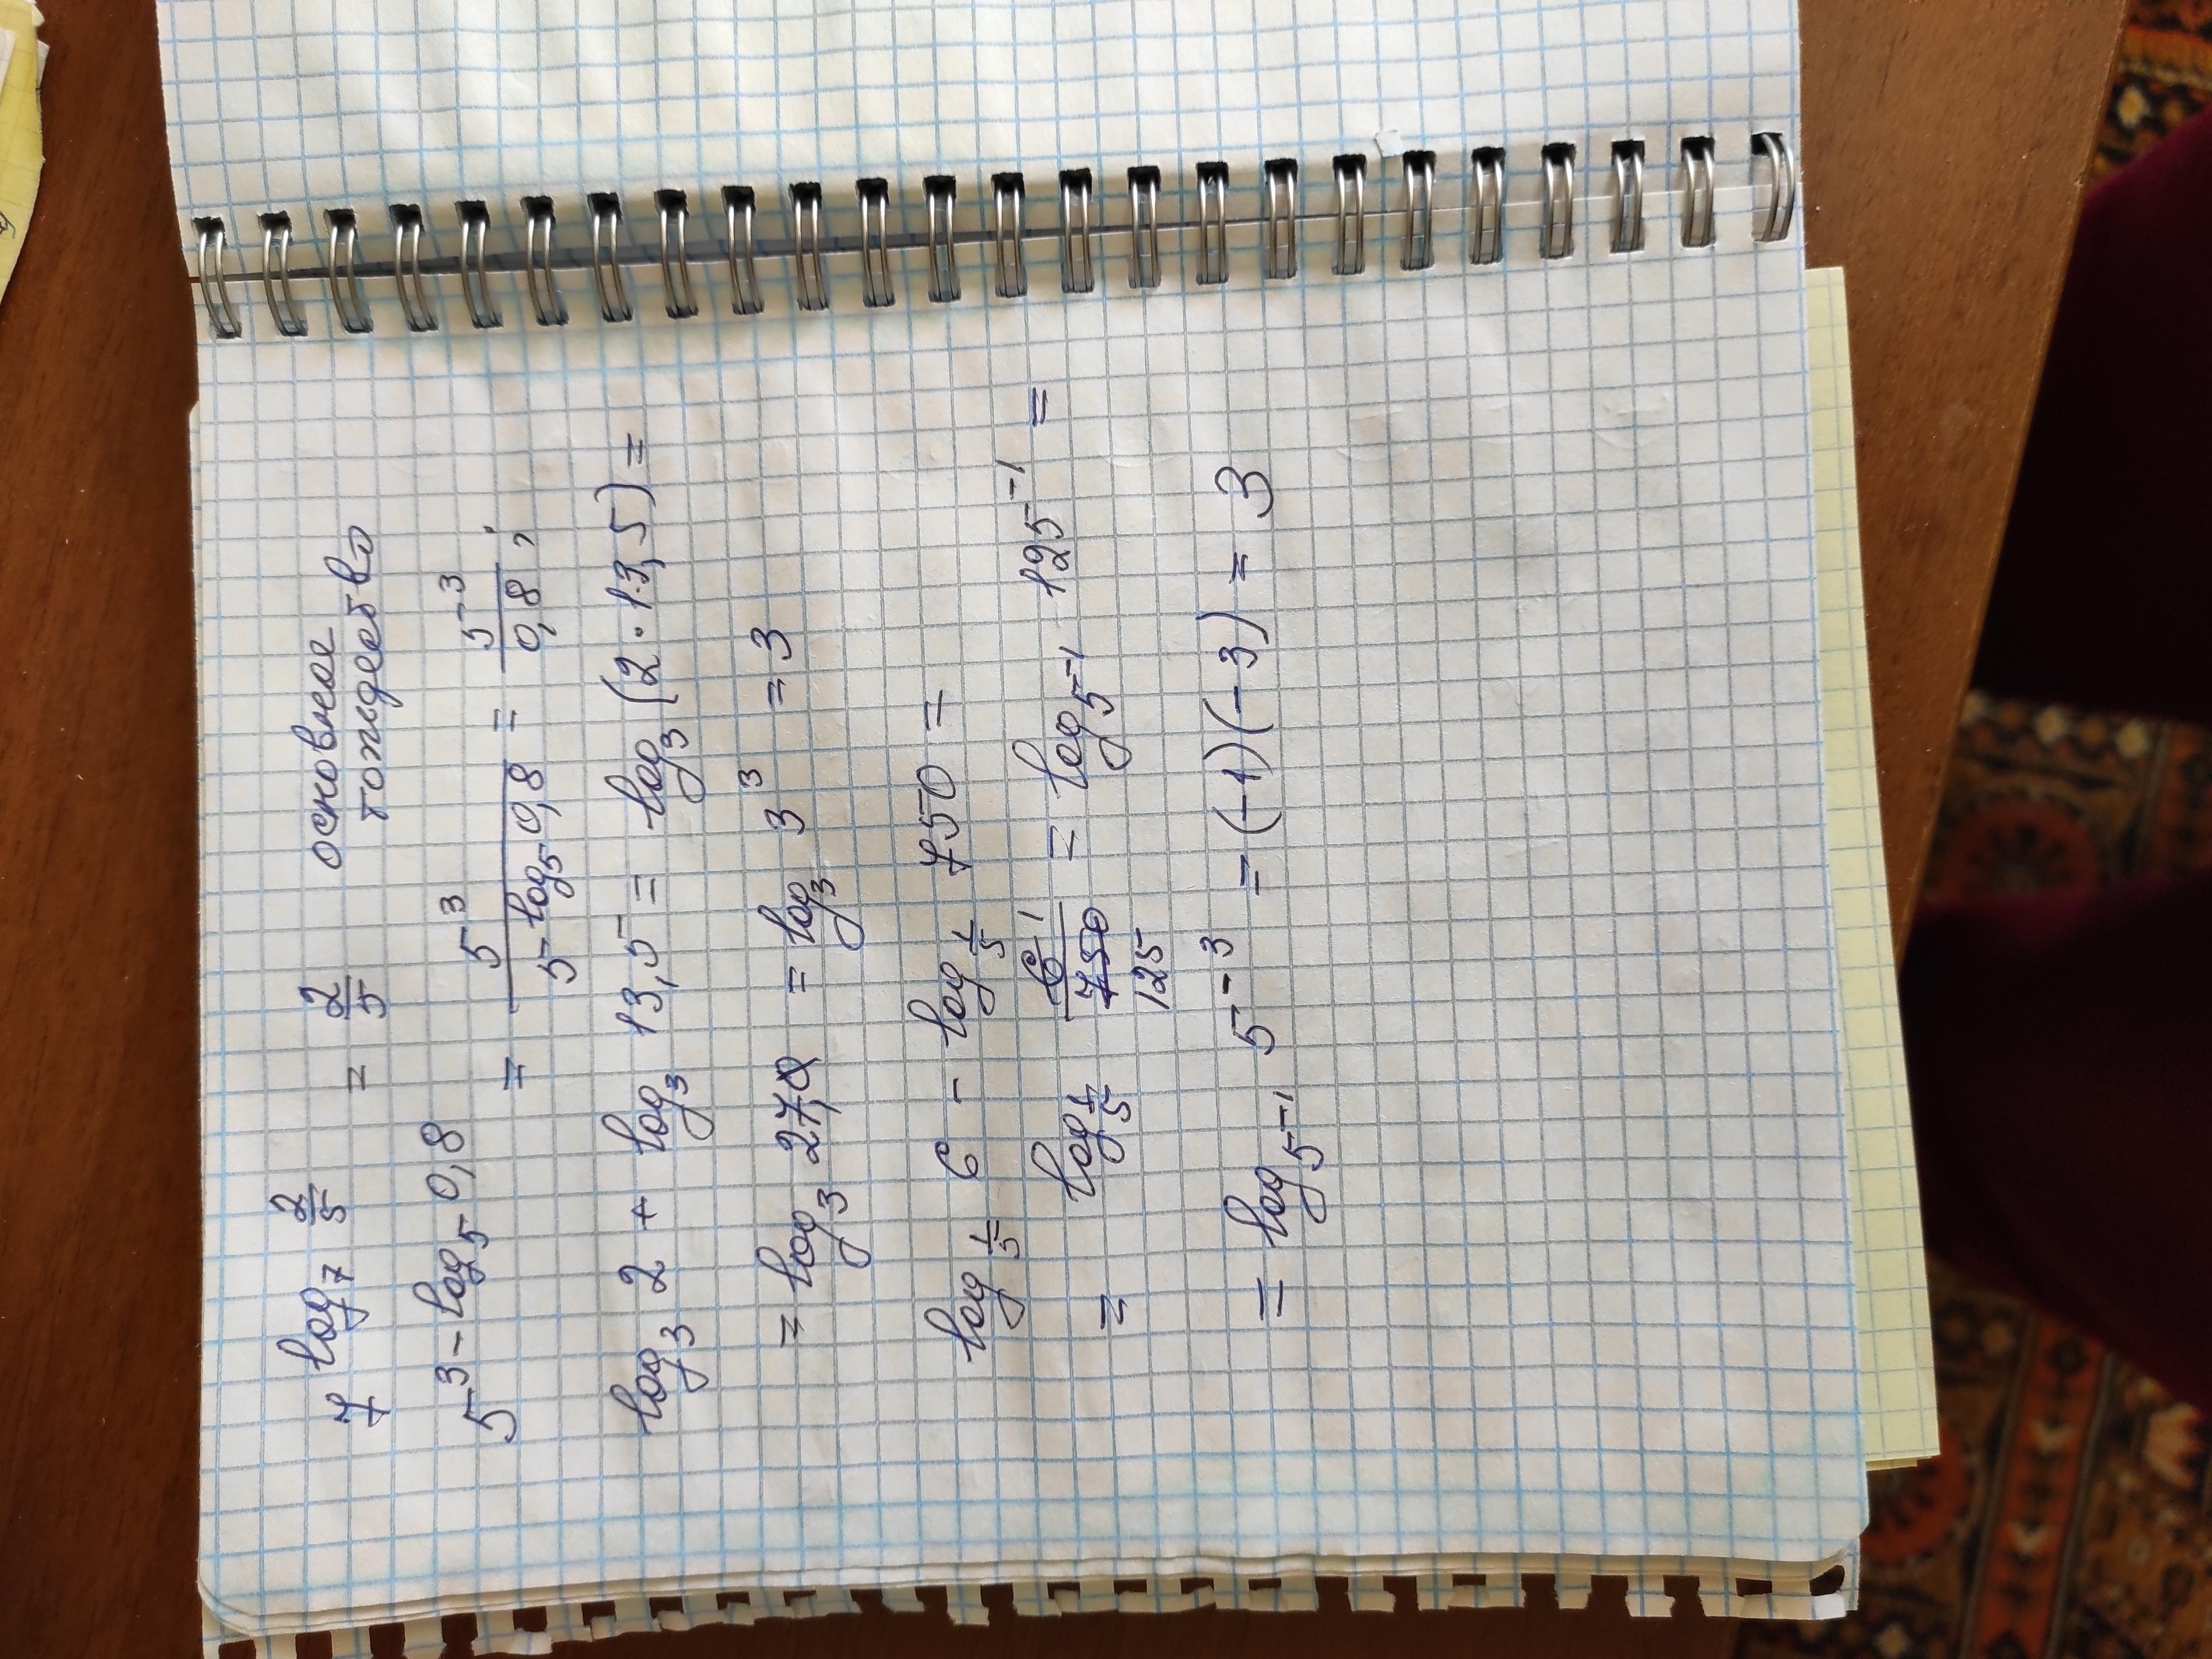 7^{log_7 2/5} = 2/5 основное
тождество
5^{3-log_5 0,8} = 5^3/5^{log_5 0,8} = 5^{-3}/0,8;
log_3 2 + log_3 13,5 = log_3 (2·13,5) =
= log_3 27,0 = log_3 3^3 = 3
log_{1/5} 6 - log_{1/5} 750 =
= log_{1/5} 6^1/750_125 = log_{5^{-1}} 125^{-1} =
= log_{5^{-1}} 5^{-3} = (-1)(-3) = 3